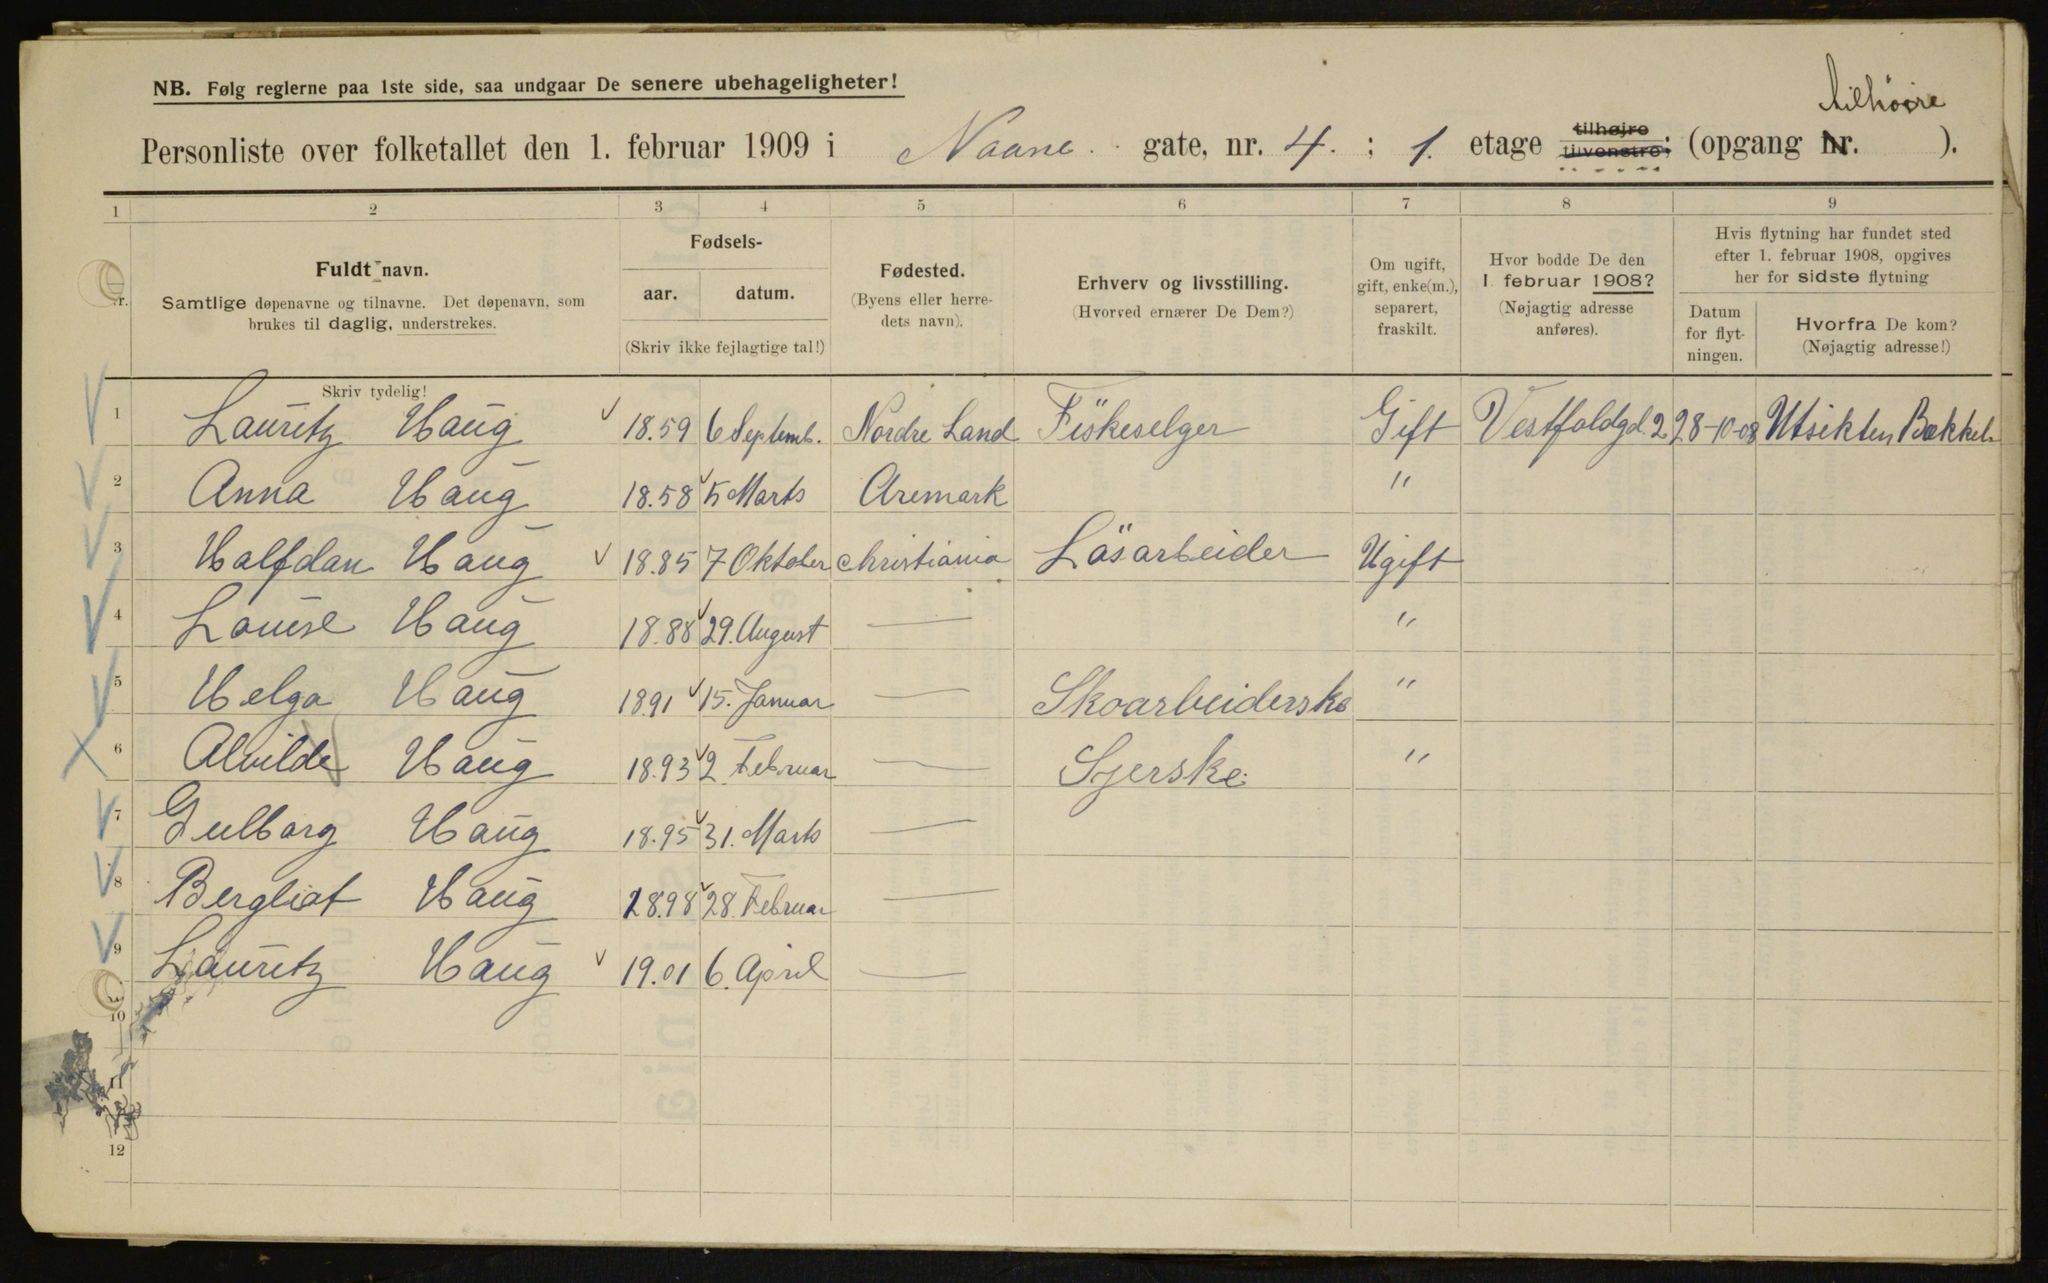 NB. Følg reglerne paa 1ste side, saa undgaar De senere ubehageligheter!
tilhøire
Personliste over folketallet den 1. februar 1909 i Naane gate, nr. 4. ; 1. etage tilhøjre tilvenstre; (opgang nr. ).
1 2 3 4 5 6 7 8 9
Nr.
Fuldt navn.
Samtlige døpenavne og tilnavne. Det døpenavn, som
brukes til daglig, understrekes.
Fødsels-
aar. datum.
(Skriv ikke fejlagtige tal!)
Fødested.
(Byens eller herre-
dets navn).
Erhverv og livsstilling.
(Hvorved ernærer De Dem?)
Om ugift,
gift, enke(m.),
separert,
fraskilt.
Hvor bodde De den
1. februar 1908?
(Nøjagtig adresse
anføres).
Hvis flytning har fundet sted
efter 1. februar 1908, opgives
her for sidste flytning
Datum
for flyt-
ningen.
Hvorfra De kom?
(Nøjagtig adresse!)
Skriv tydelig!
1 Lauritz Haug 18.59 6 Septemb. Nordre Land Fiskeselger Gift Vestfoldgd. 2 28-10-08 Utsikten Bækkel.
2 Anna Haug 18.58 5 Marts Aremark "
3 Halfdan Haug 18.85 7 Oktober Christiania Løsarbeider Ugift
4 Louise Haug 18.88 29. August — "
5 Helga Haug 1891 15. Januar — Skoarbeiderske "
6 Alvilde Haug 18.93 2. Februar — Syerske "
7 Gulborg Haug 18.95 31. Marts —
8 Bergliot Haug 1898 28. Februar —
9 Lauritz Haug 19.01 6. April —
10
11
12